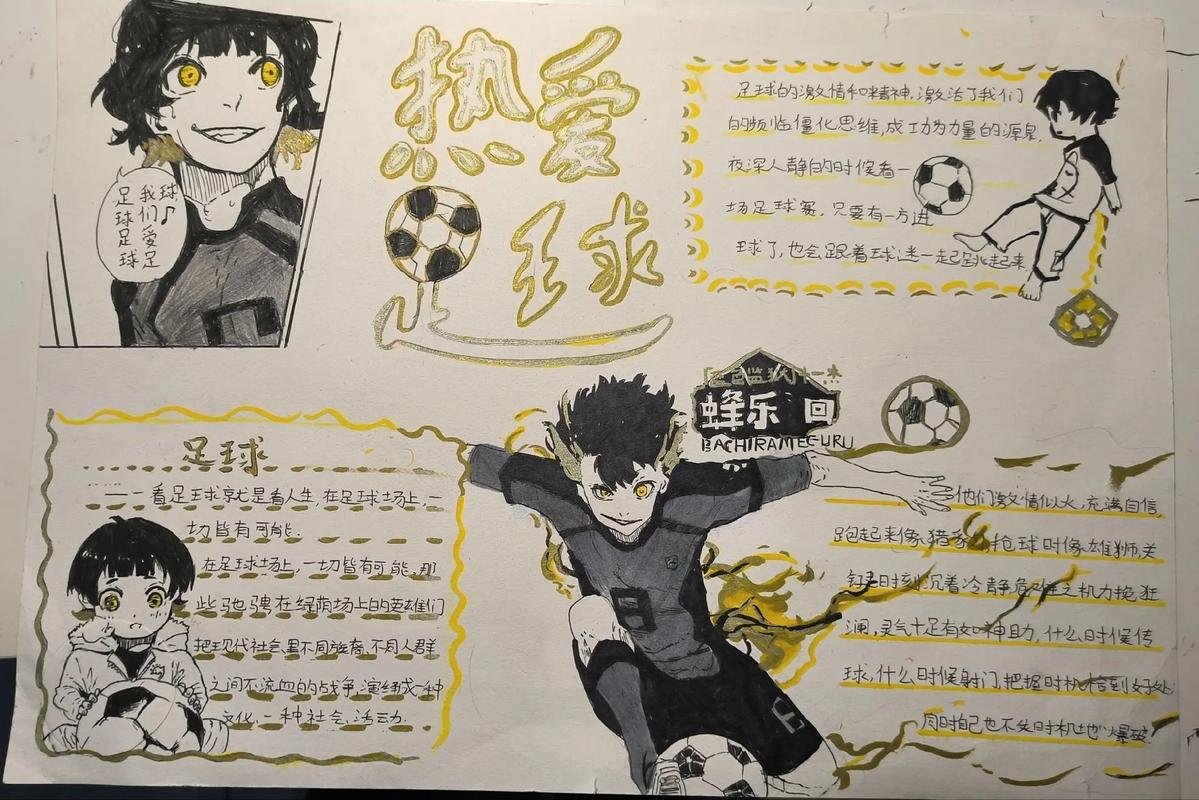 热爱
足球
球♪
我们爱足
足球足球
足球的激情和精神,激活了我们
的频临僵化思维,成功为力量的源泉,
夜深人静的时候看一
场足球赛,只要有一方进
球了,也会跟着球迷一起跳起来
监狱十一杰
蜂乐 回
BACHIRAMEGURU
足球
一看足球就是看人生,在足球场上,一
切皆有可能.
在足球场上,一切皆有可能,那
些驰骋在绿荫场上的英雄们
把现代社会里不同族裔,不同人群
之间不流血的战争,演绎成一种
文化,一种社会,活动.
他们激情似火,充满自信
跑起来像猎豹,抢球时像雄狮,关
键时刻沉着冷静危难之机力挽狂
澜,灵气十足有如神助,什么时候传
球,什么时候射门,把握时机恰到好处
同时自己也不失时机地爆破.